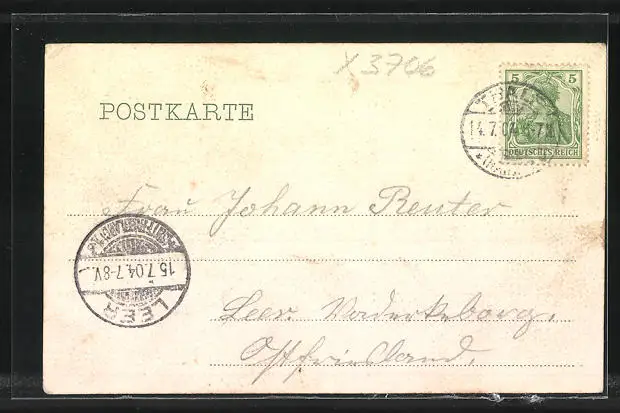 x 3706
5 5
14.7.04
DEUTSCHES REICH
POSTKARTE
Frau Johann Reuter
15.7.04.7-8V.
LEER
Leer.
Ostfriesland.